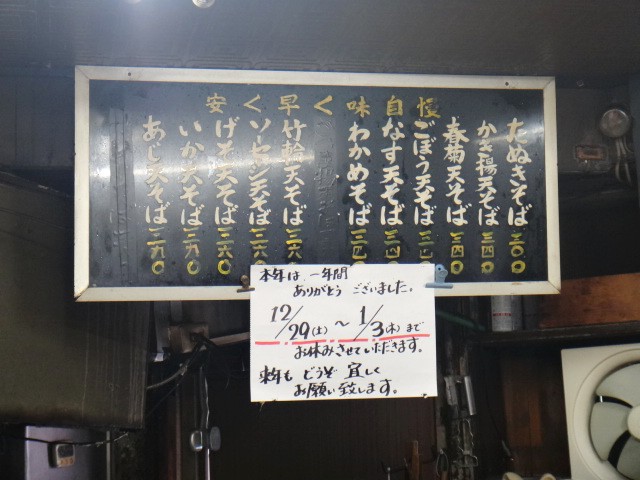 安く早く味自慢
たぬきそば 三〇〇
かき揚天そば 三四〇
春菊天そば 三四〇
ごぼう天そば 三四
なす天そば 三四
わかめそば 三四
竹輪天そば 三六
ソーセージ天そば 三六〇
げそ天そば 三六〇
いか天そば 三九〇
あじ天そば 三九〇
本年は、一年間
ありがとう ございました。
12/29(土)～1/3(木)まで
お休みさせていただきます。
来年も どうぞ 宜しく
お願い致します。